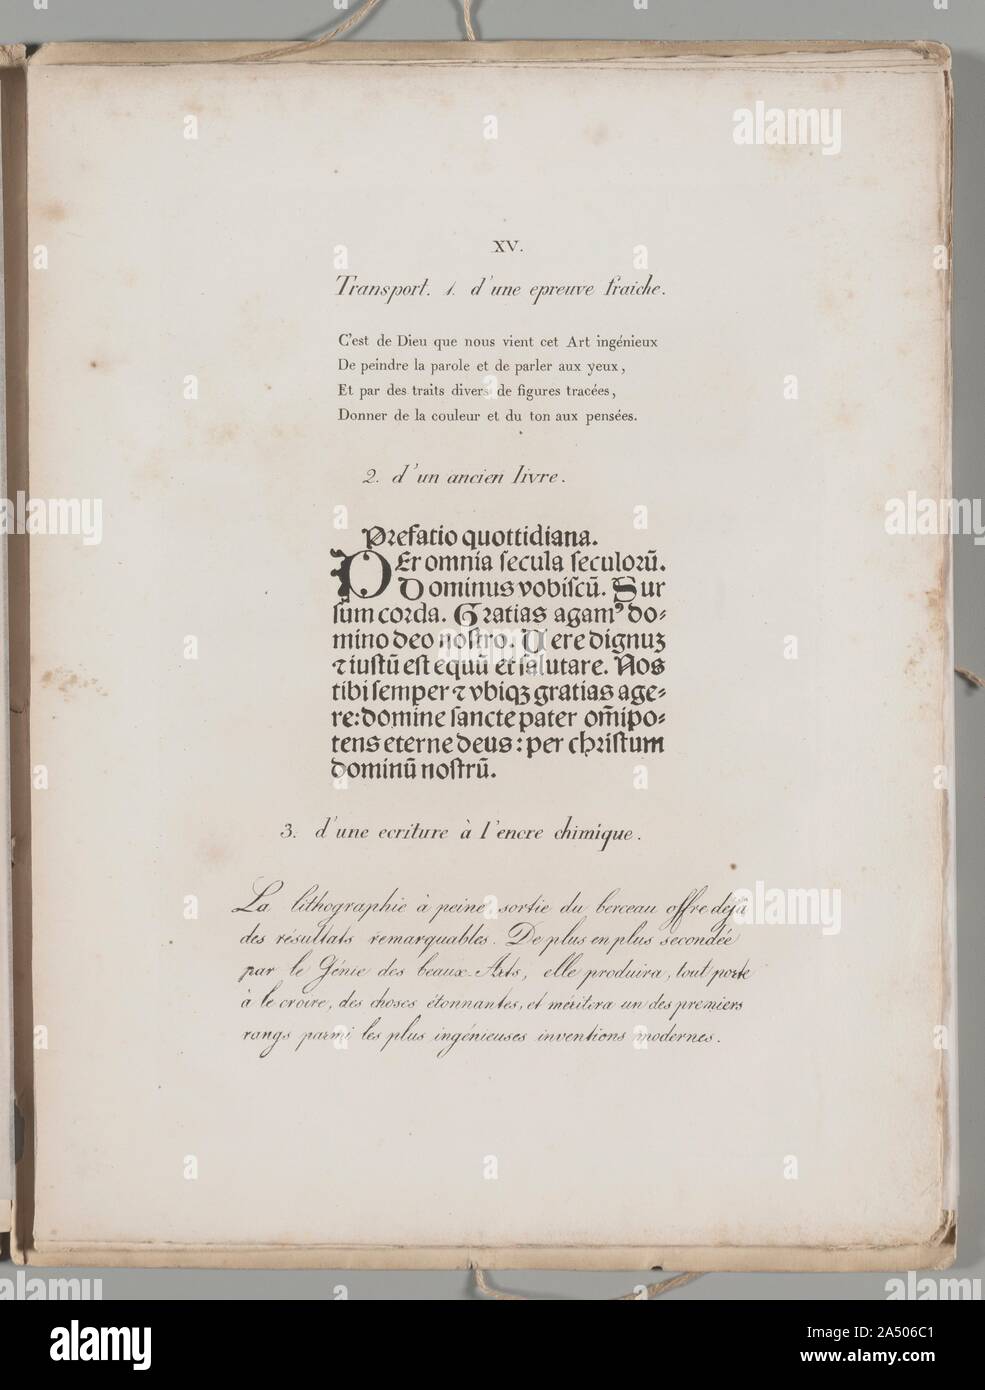 XV.
Transport. 1. d'une epreuve fraiche.
C'est de Dieu que nous vient cet Art ingénieux
De peindre la parole et de parler aux yeux,
Et par des traits divers de figures tracées,
Donner de la couleur et du ton aux pensées.
2. d'un ancien livre.
Prefatio quottidiana.
PEr omnia secula seculorū.
Dominus vobiscū. Sur
sum corda. Gratias agam⁹ do-
mino deo nostro. Vere dignuʒ
⁊ iustū est equū et salutare. Nos
tibi semper ⁊ vbiqꝫ gratias age-
re: domine sancte pater om̄ipo-
tens eterne deus: per christum
dominū nostrū.
3. d'une ecriture à l'encre chimique.
La lithographie à peine sortie du berceau offre déjà
des résultats remarquables. De plus en plus secondée
par le Génie des beaux-Arts, elle produira, tout porte
à le croire, des choses étonnantes, et méritera un des premiers
rangs parmi les plus ingénieuses inventions modernes.
a alamy stock photo
alamy
Image ID: 2A506C1
www.alamy.com